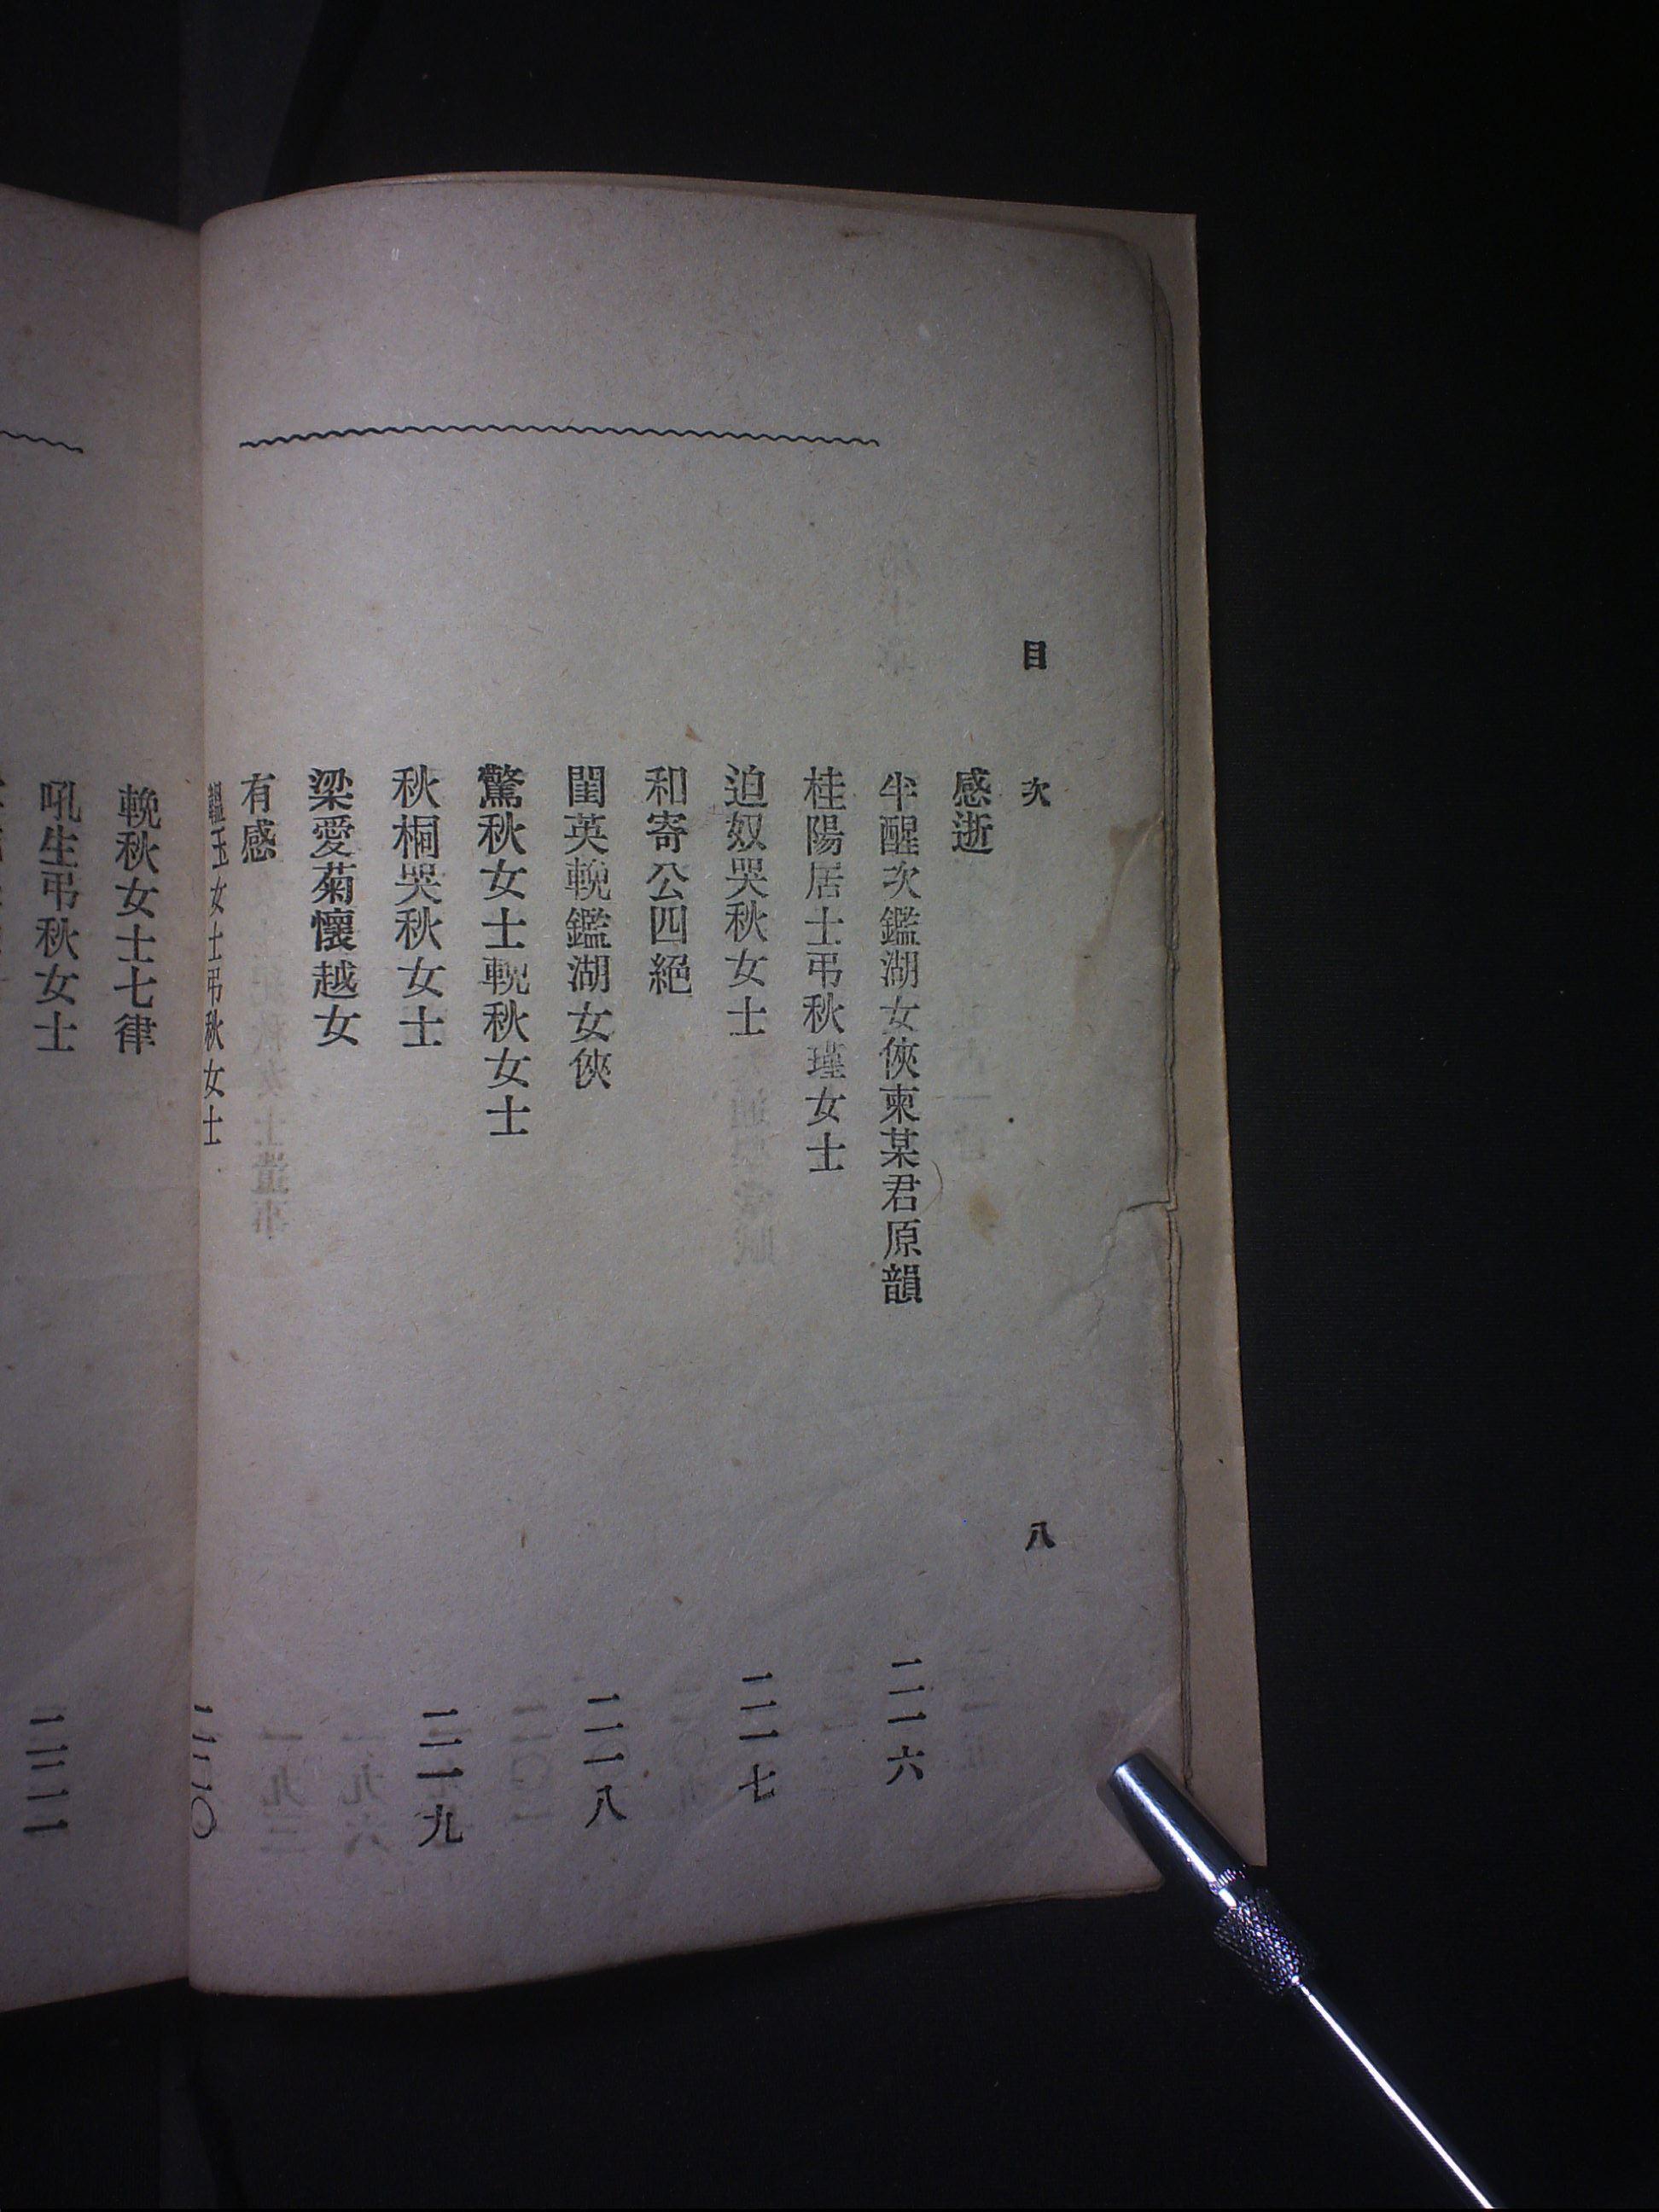 目次 八
感逝
半醒次鑑湖女俠柬某君原韻 二一六
桂陽居士弔秋瑾女士
迫奴哭秋女士 二一七
和寄公四絕
閨英輓鑑湖女俠 二一八
驚秋女士輓秋女士
秋桐哭秋女士 二一九
梁愛菊懷越女
有感
韞玉女士弔秋女士 二二〇
輓秋女士七律
吼生弔秋女士 二二一